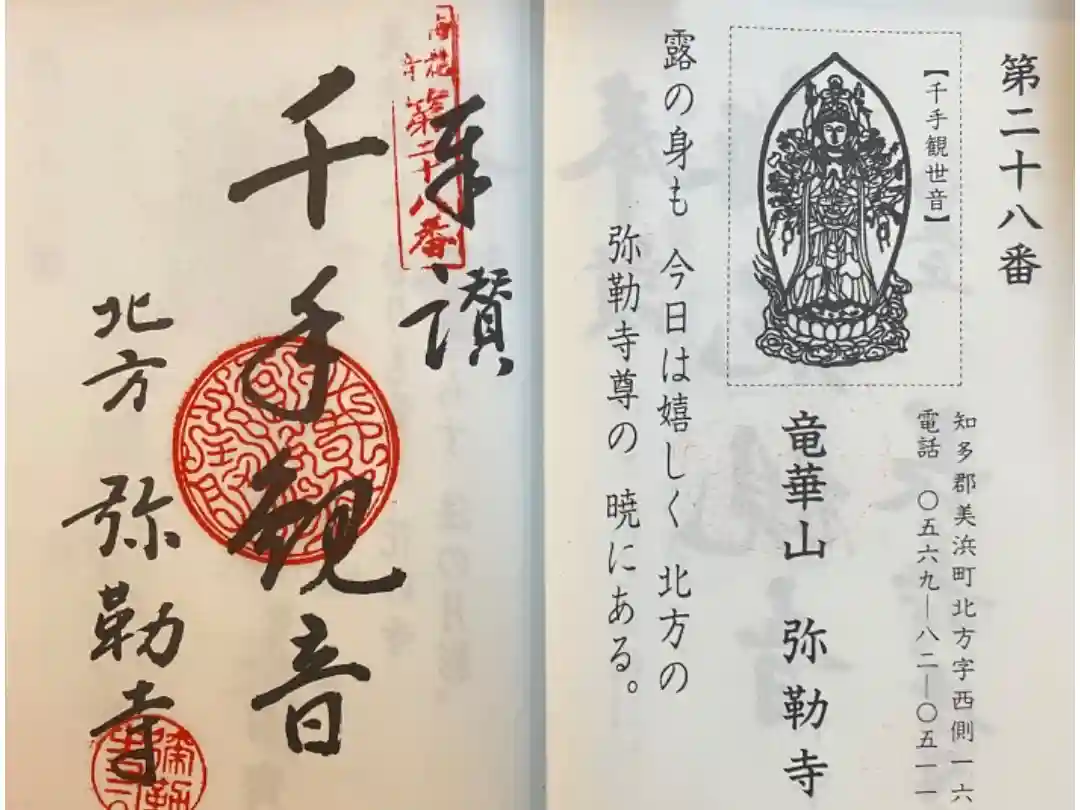 第二十八番
【千手観世音】
知多郡美浜町北方字西側一六
電話 〇五六九―八二―〇五一一
竜華山 弥勒寺
露の身も 今日は嬉しく 北方の
弥勒寺尊の 暁にある。
第二十八番
拝讃
千手観音
北方 弥勒寺